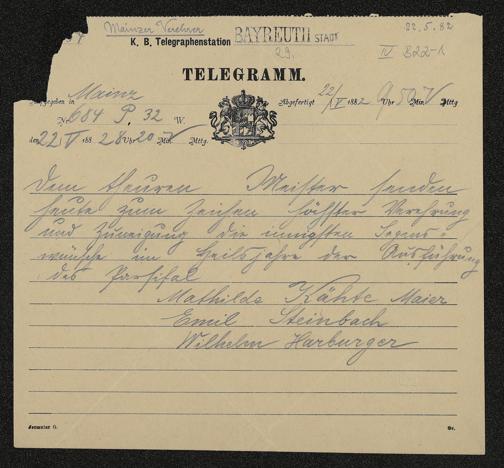 Mainzer Verehrer
22.5.82
K. B. Telegraphenstation BAYREUTH STADT
29.
IV B22-1
TELEGRAMM.
Aufgegeben in Mainz
Abgefertigt 22/V 1882 9 Uhr 50 Min. V Mttg
Nr. 684 P. 32 W.
den 22 V 1882 8 Uhr 20 Min. V Mttg.
Dem theuren Meister senden
heute zum Zeichen höchster Verehrung
und Zuneigung die innigsten Segens-
wünsche im Heilsjahre der Ausführung
des Parsifal
Mathilde Käthe Maier
Emil Steinbach
Wilhelm Harburger
Formular G.